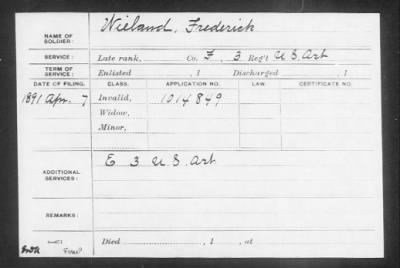 NAME OF SOLDIER: Wieland, Frederick
SERVICE: Late rank, Co. F, 3 Reg't U S. Art
TERM OF SERVICE: Enlisted , 1 Discharged , 1
DATE OF FILING. CLASS. APPLICATION NO. LAW. CERTIFICATE NO.
1891 Apr. 7 Invalid, 1014849
Widow,
Minor,
ADDITIONAL SERVICES: E 3 U S. Art
REMARKS:
Died , 1 , at